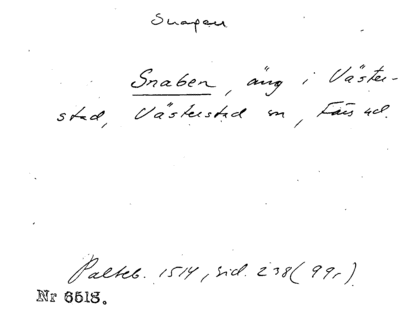 Snapen
Snaben, äng i Väster-
stad, Västerstad sn, Färs hd.
Palteb. 1514, sid. 238 (99r)
Nr 6518.